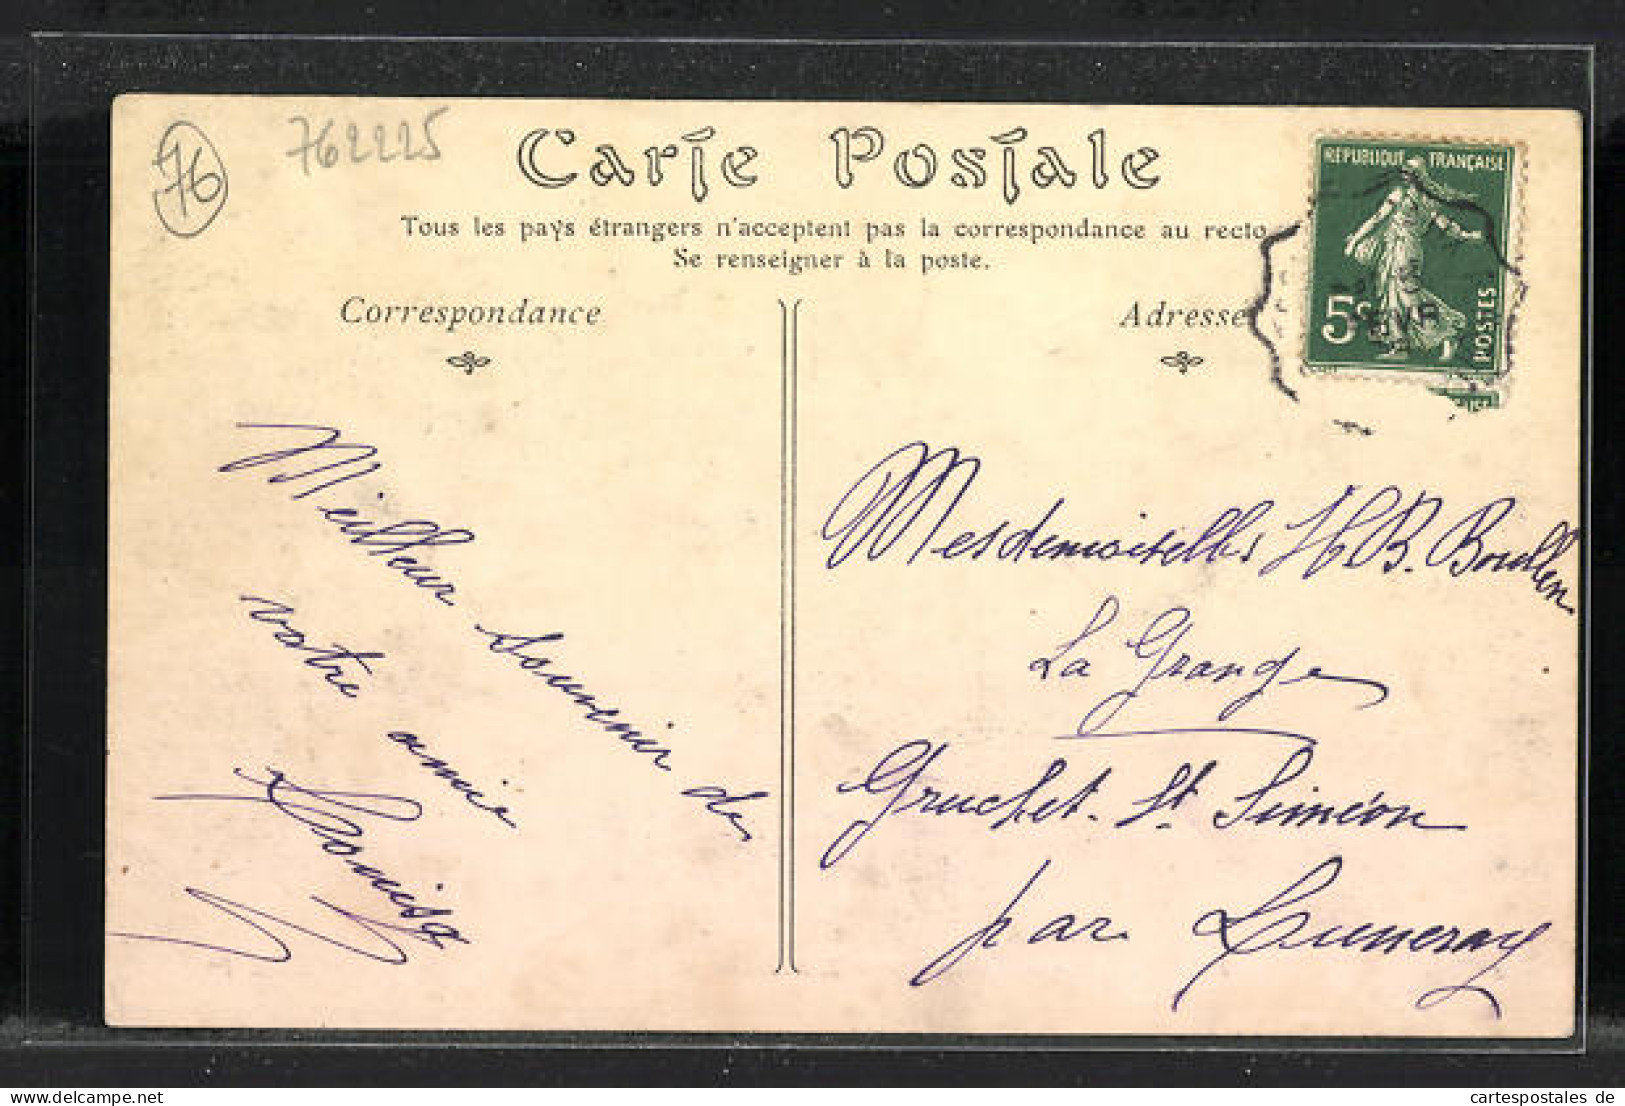 76
762225
Carte Postale
Tous les pays étrangers n'acceptent pas la correspondance au recto
Se renseigner à la poste.
Correspondance
Adresse
RÉPUBLIQUE FRANÇAISE
5c
POSTES
FEVR
Meilleur Souvenir de
votre amie
Louisa
Mesdemoiselles H B. Boullen
La Grange
Gruchet-St Siméon
par Luneray
cartespostales de